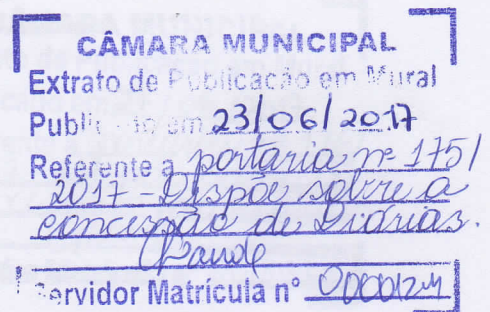 CÂMARA MUNICIPAL
Extrato de Publicação em Mural
Publicado em 23/06/2017
Referente a portaria nº 175/
2017 - Dispõe sobre a
concessão de Diárias.
Servidor Matrícula nº